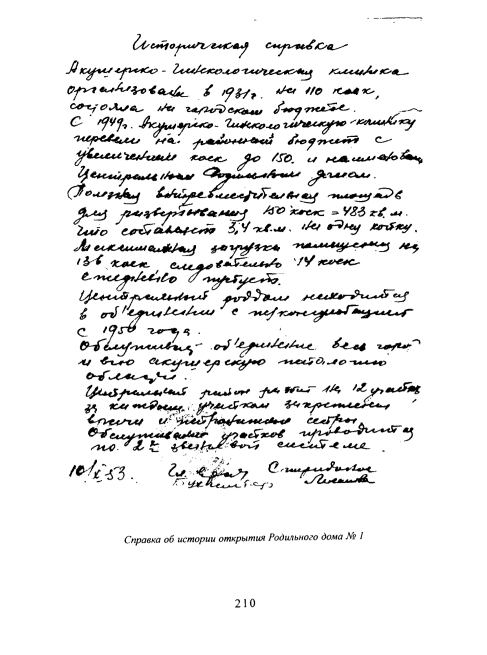 Историческая справка
Акушерско-гинекологическая клиника
организована в 1931г. на 110 коек,
состояла на городском бюджете.
С 1949г. Акушерско-гинекологическую клинику
перевели на районный бюджет с
увеличением коек до 150. и
Центральным Родильным домом.
Полезная площадь
для развертывания 150 коек = 483 кв. м.
что составляет 3,4 кв. м. на одну койку.
Максимальная загрузка помещения на
136 коек следовательно 14 коек
ежедневно пустует.
Центральный роддом находится
в об'единении с
с 1950 года.
об'единение весь город
и всю акушерскую патологию
области.
Центральный район разбит на 12 участков
за каждым участком закреплены
врачи и патронажные сестры.
Обслуживание участков проводится
по 2х звеньевой системе.
10/X 53. Гл. врач Спиридонов
Бухгалтер
Справка об истории открытия Родильного дома № 1
210